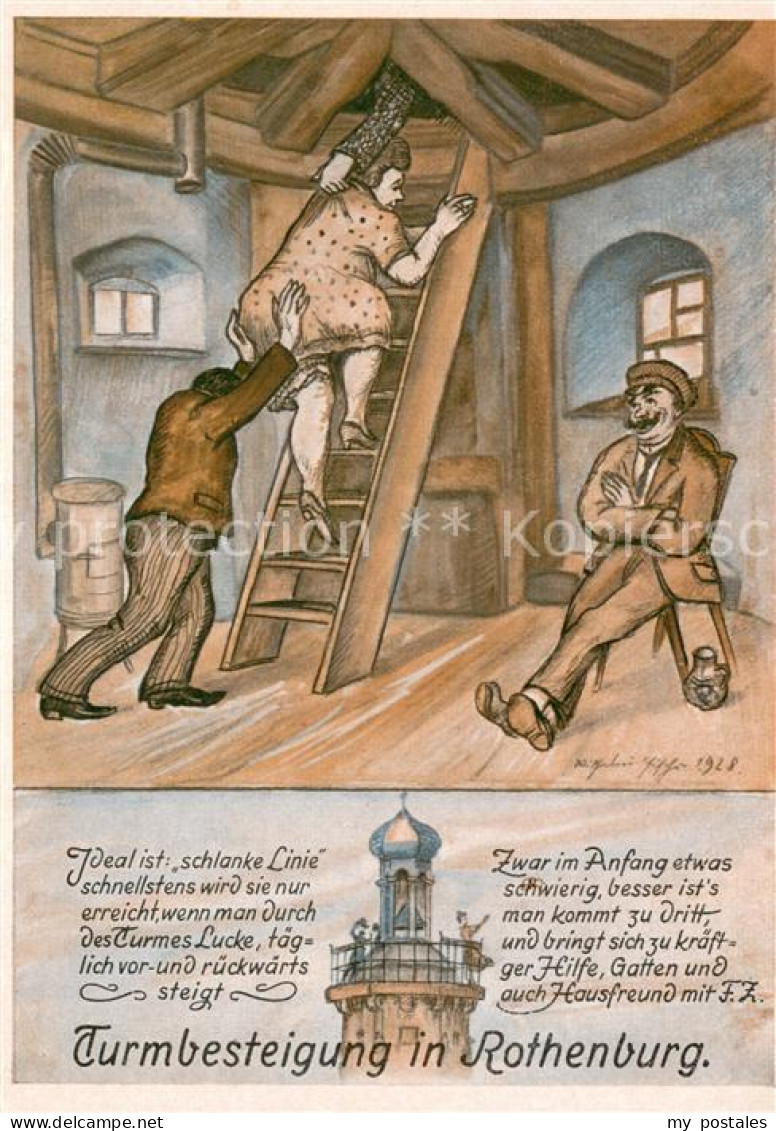 Wilhelm Fischer 1928.
Ideal ist: „schlanke Linie"
schnellstens wird sie nur
erreicht, wenn man durch
des Turmes Lucke, täg=
lich vor- und rückwärts
steigt
Zwar im Anfang etwas
schwierig, besser ist's
man kommt zu dritt,
und bringt sich zu kräft=
ger Hilfe, Gatten und
auch Hausfreund mit F.Z.
Turmbesteigung in Rothenburg.
my protection ** Kopiersch
my postales